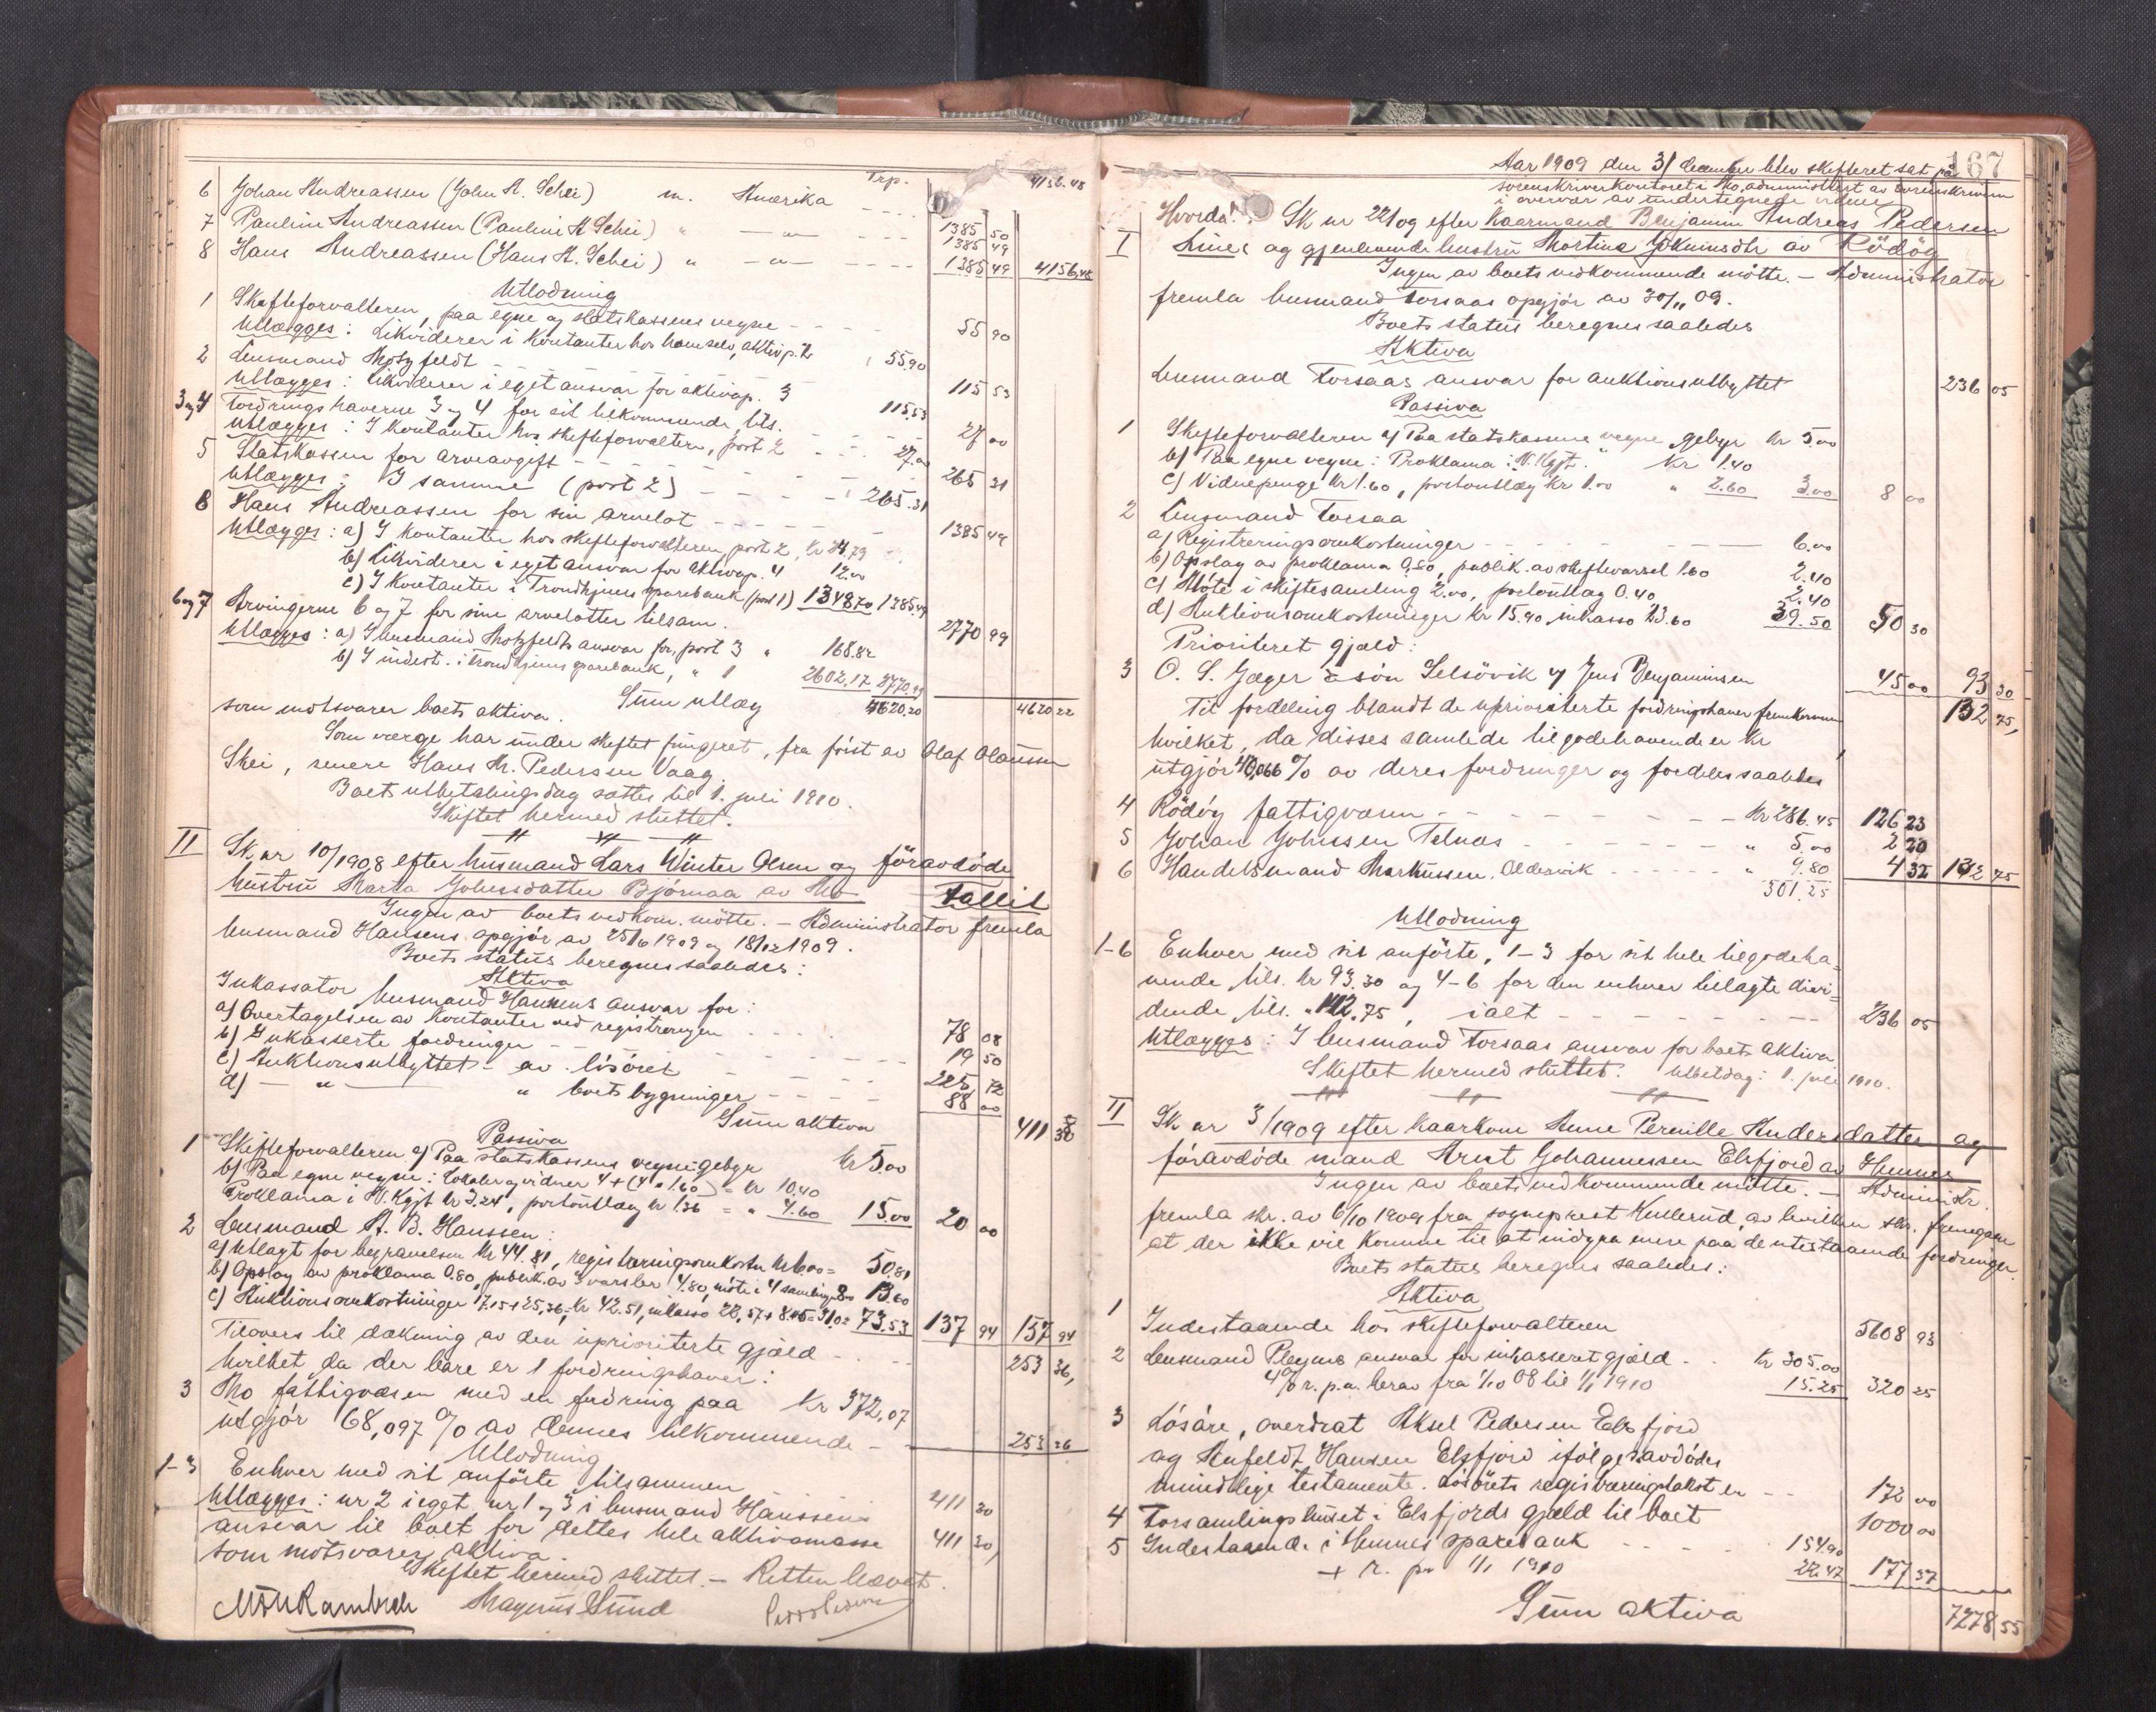 Trp. 4156.48
6 Johan Andreassen (John A. Schei) m. Amerika - - - - 1385 50
7 Pauline Andreassen (Pauline A Schei) " — " — - - - 1385 49
8 Hans Andreassen (Hans A. Schei) " — " — - - - - 1385 49 4156.48
Utlodning
1 Skifteforvalteren, paa egne og statskassens vegne - - - - 55 90
Utlægges: Likviderer i kontanter hos ham selv, aktivp. 2 55.90
2 Lensmand Motzfeldt - - - - 115 53
Utlægges: Likviderer i eget ansvar for aktivap. 3 115.53
3 og 4 Fordringshaverne 3 og 4 for sit tilkommende, tils. - - - 27 00
Utlægges: I kontanter hos skifteforvalteren, post 2 - - - 27.00
5 Statskassen for arveavgift - - - - 265 31
Utlægges: I samme (post 2) - - - - 265.31
8 Hans Andreassen for sin arvelot - - - - 1385 49
Utlægges: a) I kontanter hos skifteforvalteren, post 2, kr 24.79
b) Likviderer i eget ansvar for aktivap. 4 12.00
c) I kontanter i Trondhjems sparebank (post 1) 1348.70 1385.49
6 og 7 Arvingerne 6 og 7 for sine arvelotter tilsam. 2770 99
Utlægges: a) I lensmand Motzfeldts ansvar for, post 3 " 168.82
b) I indest. i Trondhjems sparebank, " 1 2602.17 2770.99
Sum utlæg 4620.20 4620 22
som motsvarer boets aktiva.
Som verge har under skiftet fungeret, fra først av Olaf Olaussen
Skei, senere Hans M. Pedersen Vaag.
Boets utbetalingsdag sættes til 1. juli 1910.
Skiftet hermed sluttet.
II Sk. nr 10/1908 efter husmand Lars Winter Olsen og føravdøde
hustru Marta Johnsdatter Bjørnaa av Mo Fallit
Ingen av boets vedkom. møtte. — Administrator fremla
lensmand Hansens opgjør av 25/6 1909 og 18/12 1909.
Boets status beregnes saaledes:
Aktiva
Inkassator lensmand Hanssens ansvar for:
a) Overtagelsen av kontanter ved registreringen - - - 78 08
b) Inkasserte fordringer - - - - 19 50
c) Auktionsutbyttet - av løsøret - - - - 225 72
d) — " — " boets bygninger - - - - 88 00
Sum aktiva 411 30
Passiva
1 Skifteforvalteren a) Paa statskassens vegne: gebyr kr 5.00
b) Paa egne vegne: Lokaler og vidner 4 + (4 x 1.60) = kr 10.40
Proklama i N. Kgjt kr 3.24, portoutlæg kr 1.36 = " 4.60 15.00 20 00
2 Lensmand A. B. Hanssen:
a) Utlagt for begravelsen kr 44.81, registreringsomkostn kr 6.00 = 50.81
b) Opslag av proklama 0.80, publik. av 3 varsler 4.80, møte i 4 samlinger 8.00 13.60
c) Auktionsomkostninger 17.15 + 25,36 = kr 42.51, inkasso 22,57 + 8.45 = 31.02 = 73.53 137 94 157 94
Tilovers til dækning av den uprioriterte gjæld - - - 253 36,
hvilket, da der bare er 1 fordringshaver:
3 Mo fattigvæsen med en fordring paa kr 372,07
utgjør 68,097 % av dennes tilkommende - 253 36
Utlodning
1-3 Enhver med sit anførte tilsammen 411 30
Utlægges: nr 2 i eget nr 1 og 3 i lensmand Hanssens
ansvar til boet for dettes hele aktivamasse 411 30,
som motsvarer aktiva.
Skiftet hermed sluttet. — Retten hævet.
Magnus Sund
167
Aar 1909 den 31 december blev skifteret sat paa
sorenskriverkontoret i Mo, administrert av sorenskriveren
i overvær av undertegnede vidner
Hvorda!
I Sk nr 22/09 efter kaarmand Benjamin Andreas Pedersen
Lines og gjenlevende hustru Martine Jokumsdtr av Rødøy
Ingen av boets vedkommende møtte. — Administrator
fremla lensmand Forsaas opgjør av 30/11 09.
Boets status beregnes saaledes
Aktiva
Lensmand Forsaas ansvar for auktionsutbyttet 236 05
Passiva
1 Skifteforvalteren a) Paa statskassens vegne gebyr kr 5.00
b) Paa egne vegne: Proklama i N. Kgjt. " kr 1.40
c) Vidnepenge kr 1.60, portoutlæg kr 1.00 " 2.60 3.00 8 00
2 Lensmand Forsaa
a) Registreringsomkostninger - - - - 6.00
b) Opslag av proklama 0.80, publik. av skiftevarsel 1.60 2.40
c) Møte i skiftesamling 2.00, portoutlæg 0.40 2.40
d) Auktionsomkostninger kr 15.90, inkasso 23.60 39.50 50 30
Prioriteret gjæld:
3 O. S. Jæger & søn Selsøvik v/ Jens Benjaminsen 45 00 93 30
Til fordeling blandt de uprioriterte fordringshaver fremkommer 132 75,
hvilket, da disses samlede tilgodehavende er kr
utgjør 44,066 % av deres fordringer og fordeles saaledes
4 Rødøy fattigvæsen - - - - - - kr 286.45 126 23
5 Johan Johnsen Telnes - - - - - - " 5.00 2 20
6 Handelsmand Markussen, Aldersvik - - - - - " 9.80 4 32 132 75
301.25
Utlodning
1-6 Enhver med sit anførte, 1-3 for sit hele tilgodeha-
vende tils. kr 93.30 og 4-6 for den enhver tillagte divi-
dende, tils. " 142.75, ialt - - - - 236 05
Utlægges: I lensmand Forsaas ansvar for boets aktiva
Skiftet hermed sluttet. Utbetdag: 1. juli 1910.
II Sk nr 3/1909 efter kaarkone Anne Pernille Andersdatter og
føravdøde mand Arnt Johannessen Elsfjord av Hemnes
Ingen av boets vedkommende møtte. — Administr.
fremla skr. av 6/10 1909 fra sogneprest Kullerud, av hvilken skr. fremgaar
at der ikke vil komme til at indgaa mere paa de utestaaende fordringer.
Boets status beregnes saaledes:
Aktiva
1 Indestaaende hos skifteforvalteren 5608 93
2 Lensmand Pleyms ansvar for inkasseret gjæld - - kr 305.00
4 % r. p.a. herav fra 1/10 08 til 1/1 1910 15.25 320 25
3 Løsøre, overdrat Aksel Pedersen Elsfjord
og Anfeldt Hansen Elsfjord ifølge avdødes
mundtlige testamente. Løsørets registreringstakst er - - 172 00
4 Forsamlingshuset i Elsfjords gjæld til boet 1000 00
5 Indestaaende i Hemnes sparebank - - - - 154.90
+ r. pr 1/1 1910 22.47 177 37
Sum aktiva 7278 55